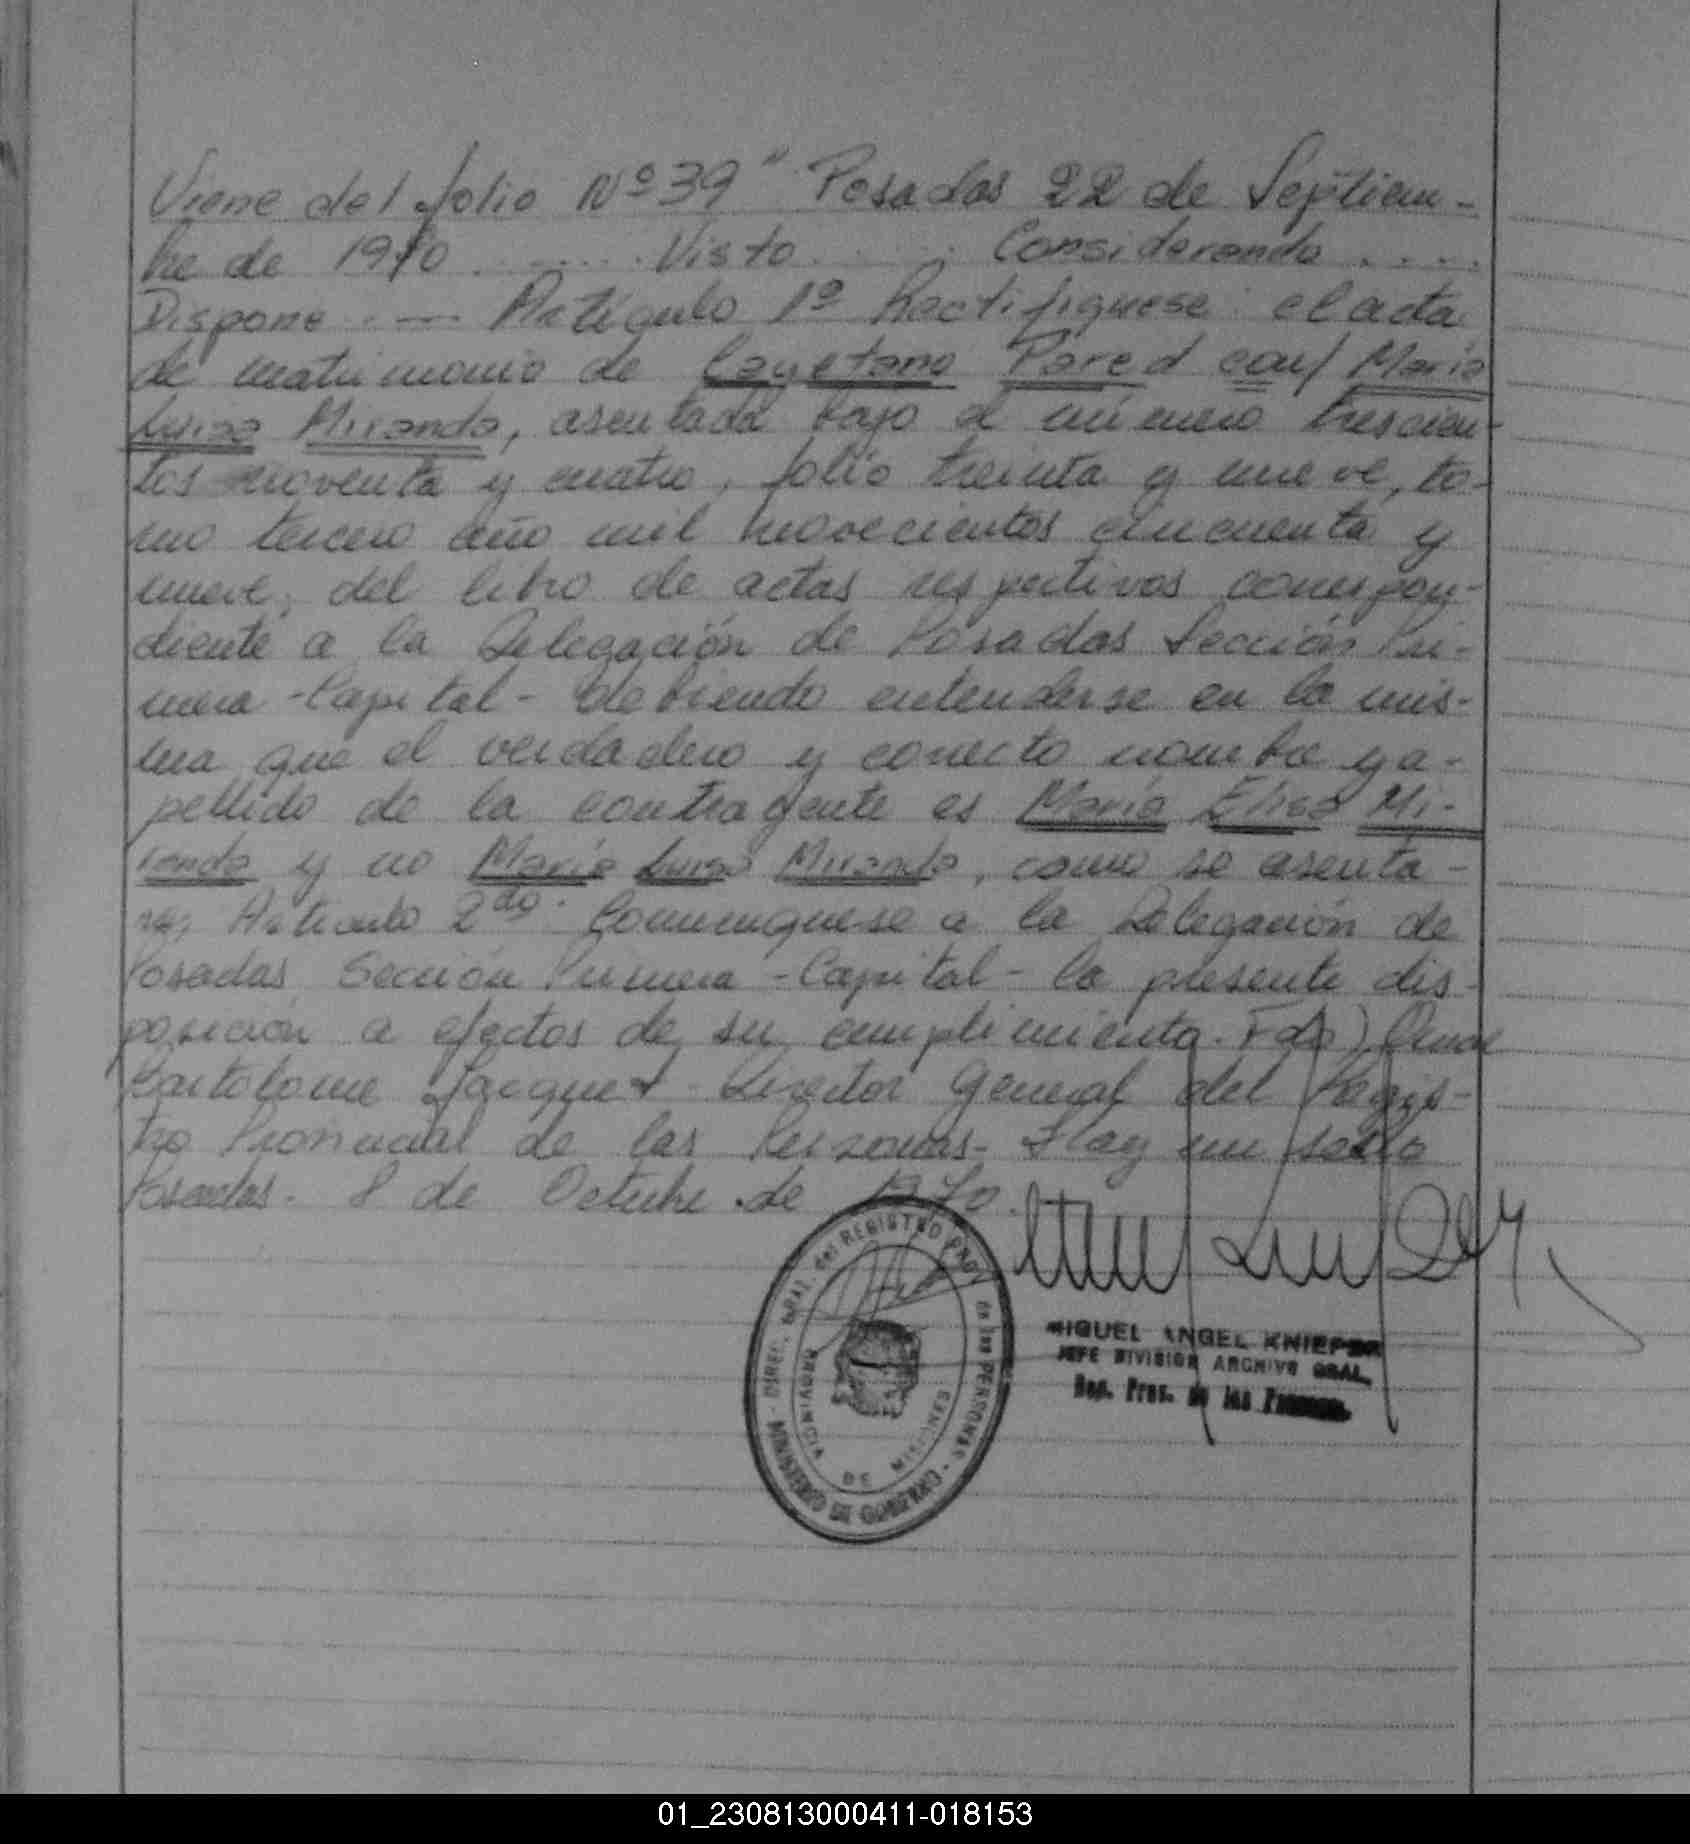 Viene del folio Nº 39" Posadas 22 de Septiem-
bre de 1970 ....... Visto ....... Considerando ....
Dispone .— Artículo 1º Rectifiquese el acta
de matrimonio de Cayetano Pared con/ María
Luisa Miranda, asentada bajo el número trescien-
tos noventa y cuatro, folio treinta y nueve, to-
mo tercero año mil novecientos cincuenta y
nueve, del libro de actas respectivos correspon-
diente a la Delegación de Posadas Sección Pri-
mera -Capital- debiendo entenderse en la mis-
ma que el verdadero y correcto nombre y a-
pellido de la contragente es María Elisa Mi-
randa y no María Luisa Miranda, como se asenta-
ra, Articulo 2do. Comuniquese a la Delegación de
Posadas, Sección Primera -Capital- la presente dis-
posición a efectos de su cumplimiento. Fdo)
Bartolome Jacquet - Director General del Regis-
tro Provincial de las Personas- Hay un sello
Posadas. 8 de Octubre de 1970.
DIREC. GRAL. del REGISTRO PROV. de las PERSONAS - MINISTERIO DE GOBIERNO
PROVINCIA DE MISIONES
MIGUEL ANGEL KNIEPER
JEFE DIVISION ARCHIVO GRAL.
Reg. Prov. de las Personas
01_230813000411-018153